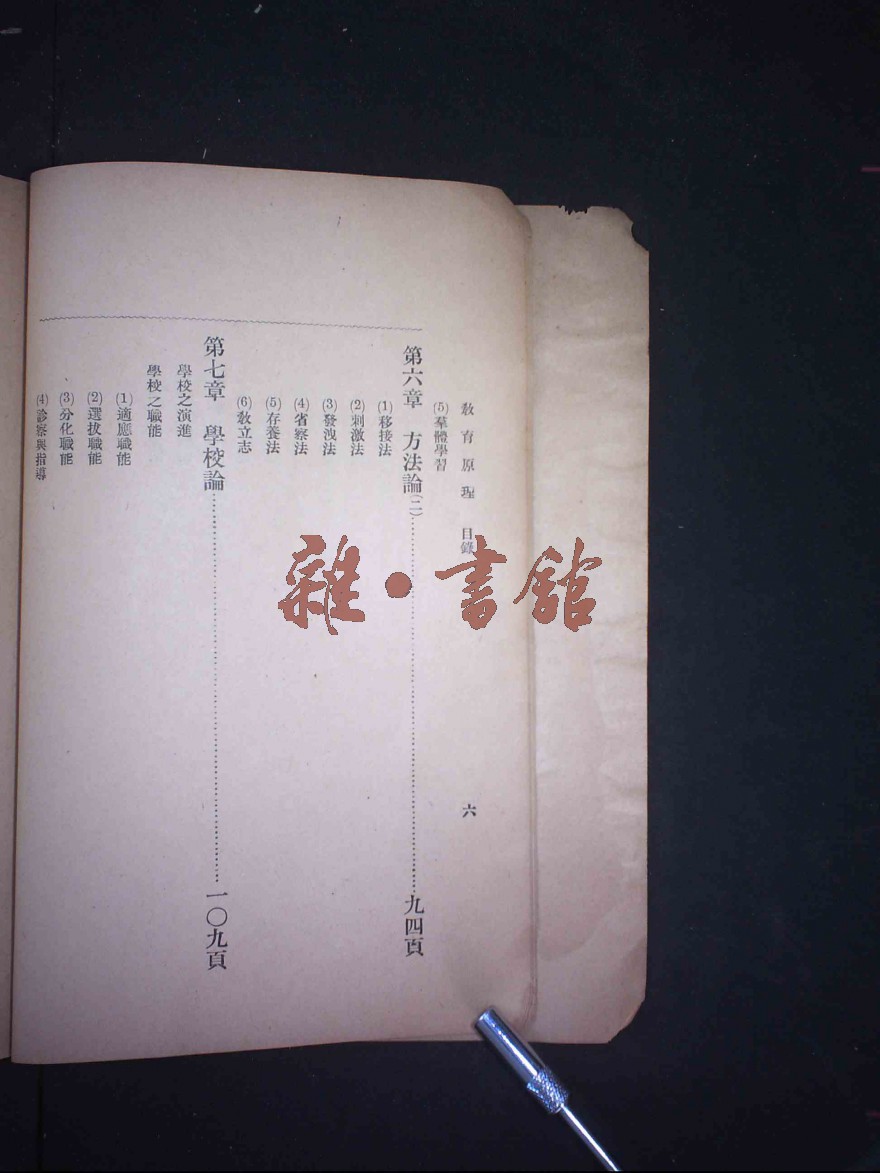 教育原理 目錄 六
(5)羣體學習
第六章 方法論(二)……九四頁
(1)移接法
(2)刺激法
(3)發洩法
(4)省察法
(5)存養法
(6)教立志
第七章 學校論……一〇九頁
學校之演進
學校之職能
(1)適應職能
(2)選拔職能
(3)分化職能
(4)診察與指導
雜·書館